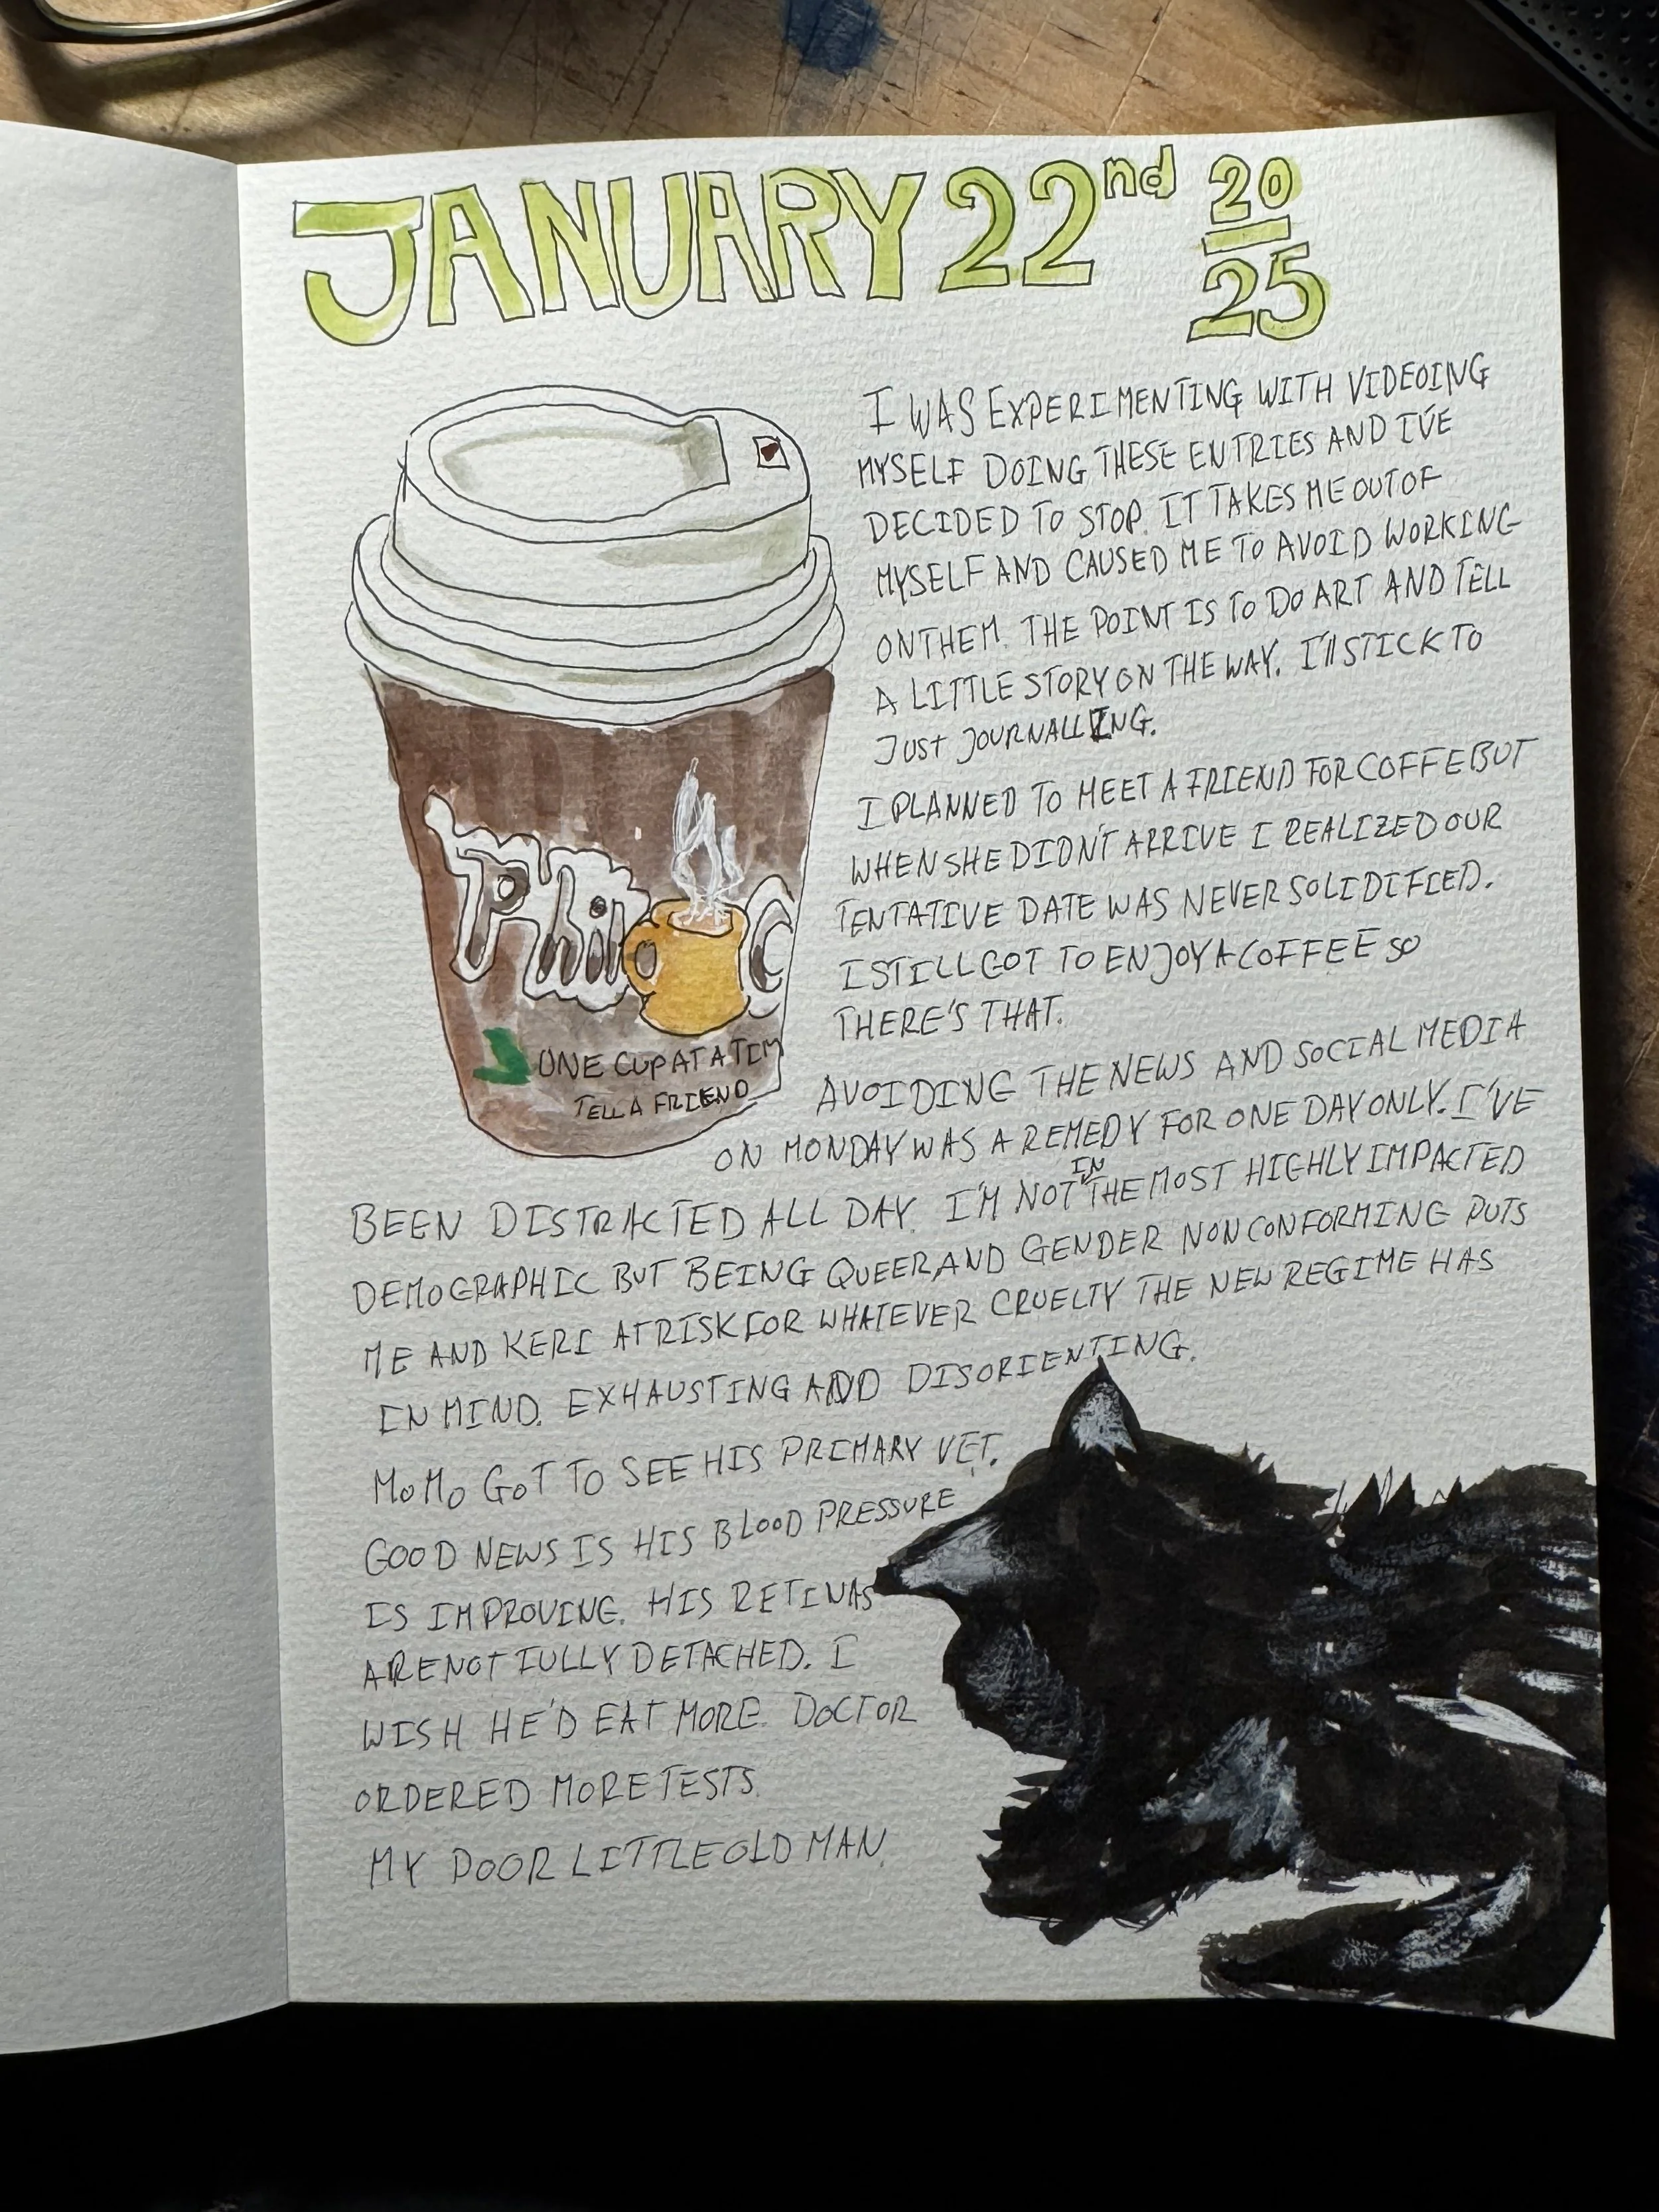 JANUARY 22nd 20
25
I WAS EXPERIMENTING WITH VIDEOING
MYSELF DOING THESE ENTRIES AND I'VE
DECIDED TO STOP. IT TAKES ME OUT OF
MYSELF AND CAUSED ME TO AVOID WORKING
ON THEM. THE POINT IS TO DO ART AND TELL
A LITTLE STORY ON THE WAY. I'll STICK TO
JUST JOURNALLING.
I PLANNED TO MEET A FRIEND FOR COFFE BUT
WHEN SHE DIDN'T ARRIVE I REALIZED OUR
TENTATIVE DATE WAS NEVER SOLIDIFIED.
I STILL GOT TO ENJOY A COFFEE SO
THERE'S THAT.
Philz C
ONE CUP AT A TIM
TELL A FRIEND
AVOIDING THE NEWS AND SOCIAL MEDIA
ON MONDAY WAS A REMEDY FOR ONE DAY ONLY. I'VE
BEEN DISTRACTED ALL DAY. I'M NOT IN THE MOST HIGHLY IMPACTED
DEMOGRAPHIC BUT BEING QUEER AND GENDER NONCONFORMING PUTS
ME AND KERI AT RISK FOR WHATEVER CRUELTY THE NEW REGIME HAS
IN MIND. EXHAUSTING AND DISORIENTING.
MOMO GOT TO SEE HIS PRIMARY VET.
GOOD NEWS IS HIS BLOOD PRESSURE
IS IMPROVING. HIS RETINAS
ARE NOT FULLY DETACHED. I
WISH HE'D EAT MORE. DOCTOR
ORDERED MORE TESTS.
MY POOR LITTLE OLD MAN.